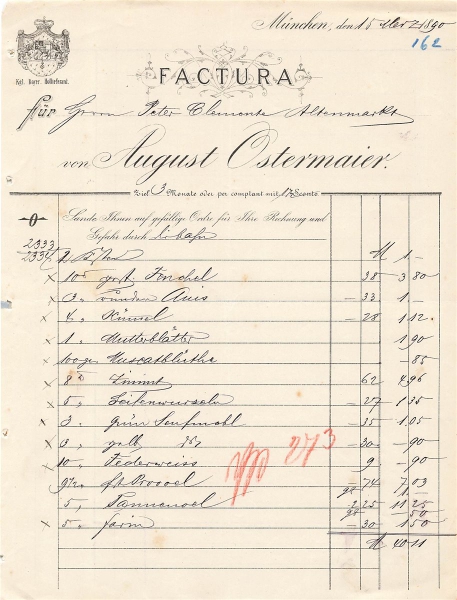 München, den 15 März 1890
162
Kgl. Bayer. Hoflieferant.
FACTURA
Für Herrn Peter Clemente Altenmarkt
von August Ostermaier.
Ziel 3 Monate oder per comptant mit 1½% Sconto.
Sende Ihnen auf gefällige Ordre für Ihre Rechnung und
Gefahr durch
2333
2334 2 Kisten M 1 -
x 10 gest. Fenchel - 38 - 3 80
x 3 runden Anis - 33 1 -
x 4 Kümmel - 28 1 12
x 1 Mutterblätter 1 90
x 100 gr Muscatblüthe - 85
x 8 Zimmt 62 4 96
x 5 Veilenwurzeln - 27 1 35
x 3 grün Senfmehl - 35 1 05
x 3 gelb - 30 - 90
x 10 Federweiss 9 - 90
- 74 7 03
98 1
5 Tannenoel 2 25 11 25
98 - 50
x 5 Farin - 30 1 50
M 40 11
273